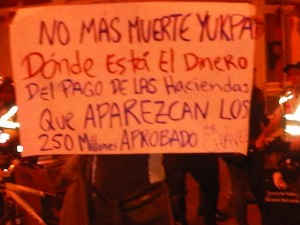 NO MÁS MUERTE YUKPA
DÓNDE ESTÁ EL DINERO
DEL PAGO DE LAS HACIENDAS
QUE APAREZCAN LOS
250 Millones APROBADO
CHAVEZ